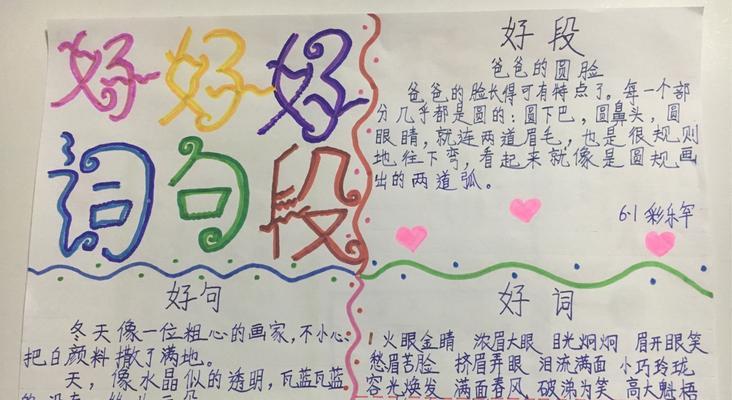 好好好
词句段
好段
爸爸的圆脸
爸爸的脸长得可有特点了。每一个部
分几乎都是圆的：圆下巴，圆鼻头，圆
眼睛，就连两道眉毛，也是很规则
地往下弯，看起来就像是圆规画
出的两道弧。
6.1 彩乐军
好句
冬天像一位粗心的画家，不小心
把白颜料撒了满地。
天，像水晶似的透明，瓦蓝瓦蓝
好词
1 火眼金睛 浓眉大眼 目光炯炯 眉开眼笑
愁眉苦脸 挤眉弄眼 泪流满面 小巧玲珑
容光焕发 满面春风 破涕为笑 高大魁梧